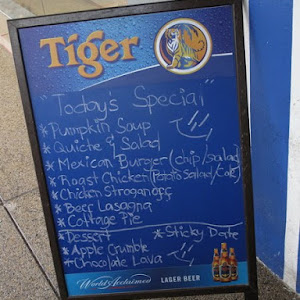 Tiger
"Today's Special"
* Pumpkin Soup
* Quiche & Salad
* Mexican Burger (chip/salad)
* Roast Chicken (Potato Salad/Cok)
* Chicken Stroganoff
* Beef Lasagna
* Cottage Pie
* Dessert * Sticky Date
* Apple Crumble
* Chocolate Lava
World Acclaimed LAGER BEER